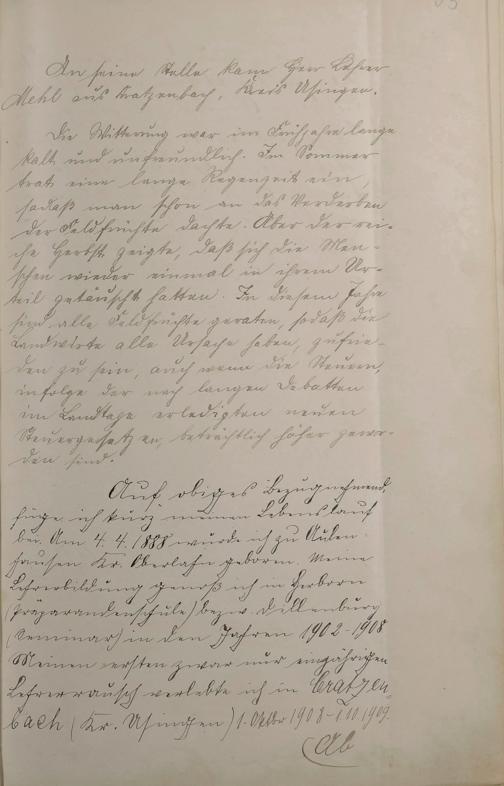 An seine Stelle kam Herr Lehrer
Mehl aus Cratzenbach, Kreis Usingen.
Die Witterung war im Frühjahre lange
kalt und unfreundlich. Im Sommer
trat eine lange Regenzeit ein,
sodaß man schon an das Verderben
der Feldfrüchte dachte. Aber der rei-
che Herbst zeigte, daß sich die Men-
schen wieder einmal in ihrem Ur-
teil getäuscht hatten. In diesem Jahre
sind alle Feldfrüchte geraten, sodaß die
Landwirte alle Ursache haben, zufrie-
den zu sein, auch wenn die Steuern,
infolge der nach langen Debatten
im Landtage erledigten neuen
Steuergesetzen, beträchtlich höher gewor-
den sind.
Auf obiges bezugnehmend,
füge ich kurz meinen Lebenslauf
bei. Am 4. 4. 1888 wurde ich zu Aulen-
hausen Kr. Oberlahn geboren. Meine
Lehrerbildung genoß ich in Herborn
(Präparandenschule) bezw. Dillenburg
(Seminar) in den Jahren 1902-1908
Meinen ersten zwar nur einjährigen
Lehrerrausch verlebte ich in Cratzen-
bach (Kr. Usingen) 1. Oktbr 1908 - 1.10.1909.
Ab